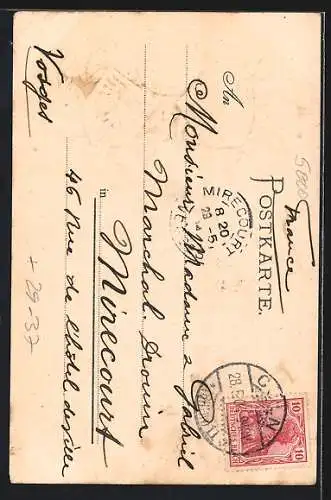 France
POSTKARTE.
An
Monsieur, Madame & Gabriel
Marchal. Drouin
in Mirecourt
46 Rue de l'hôtel de ville
Vosges
MIRECOURT
8 20
29 -5
VOSGES
28.5
10 10
+ 29-37